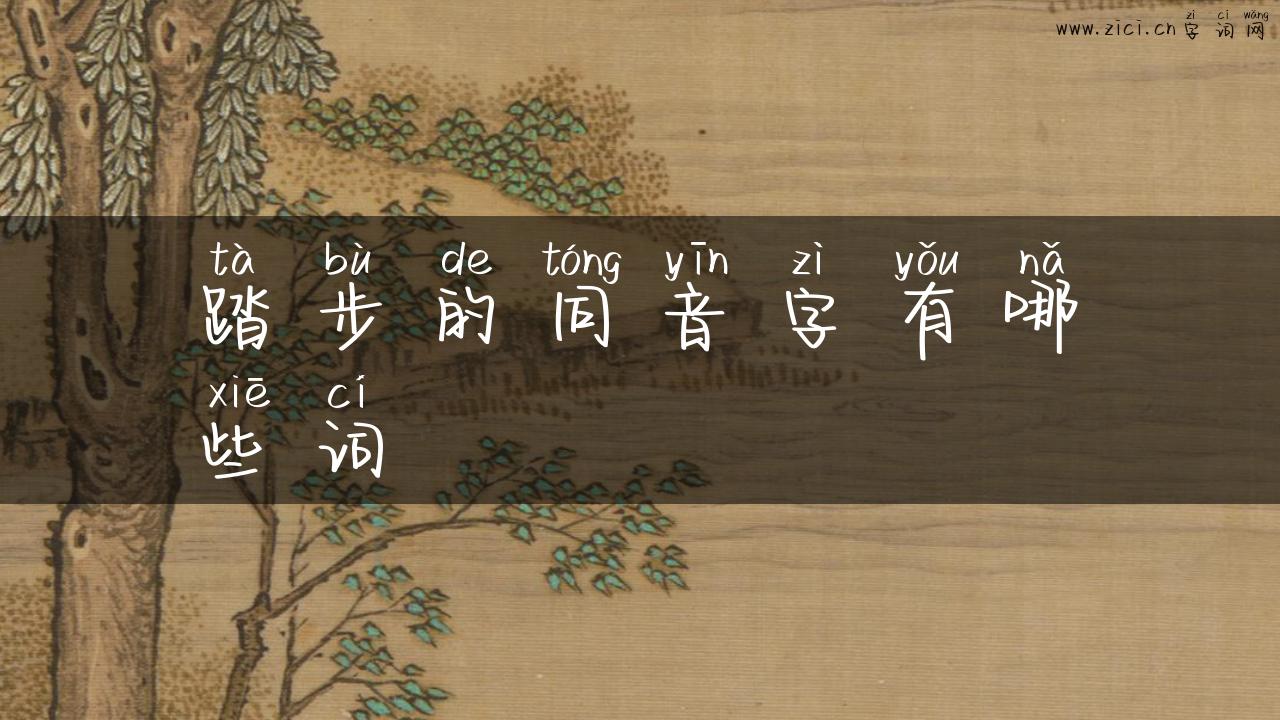 zì cí wǎng
www.zici.cn 字词网
tà bù de tóng yīn zì yǒu nǎ
踏步的同音字有哪
xiē cí
些词